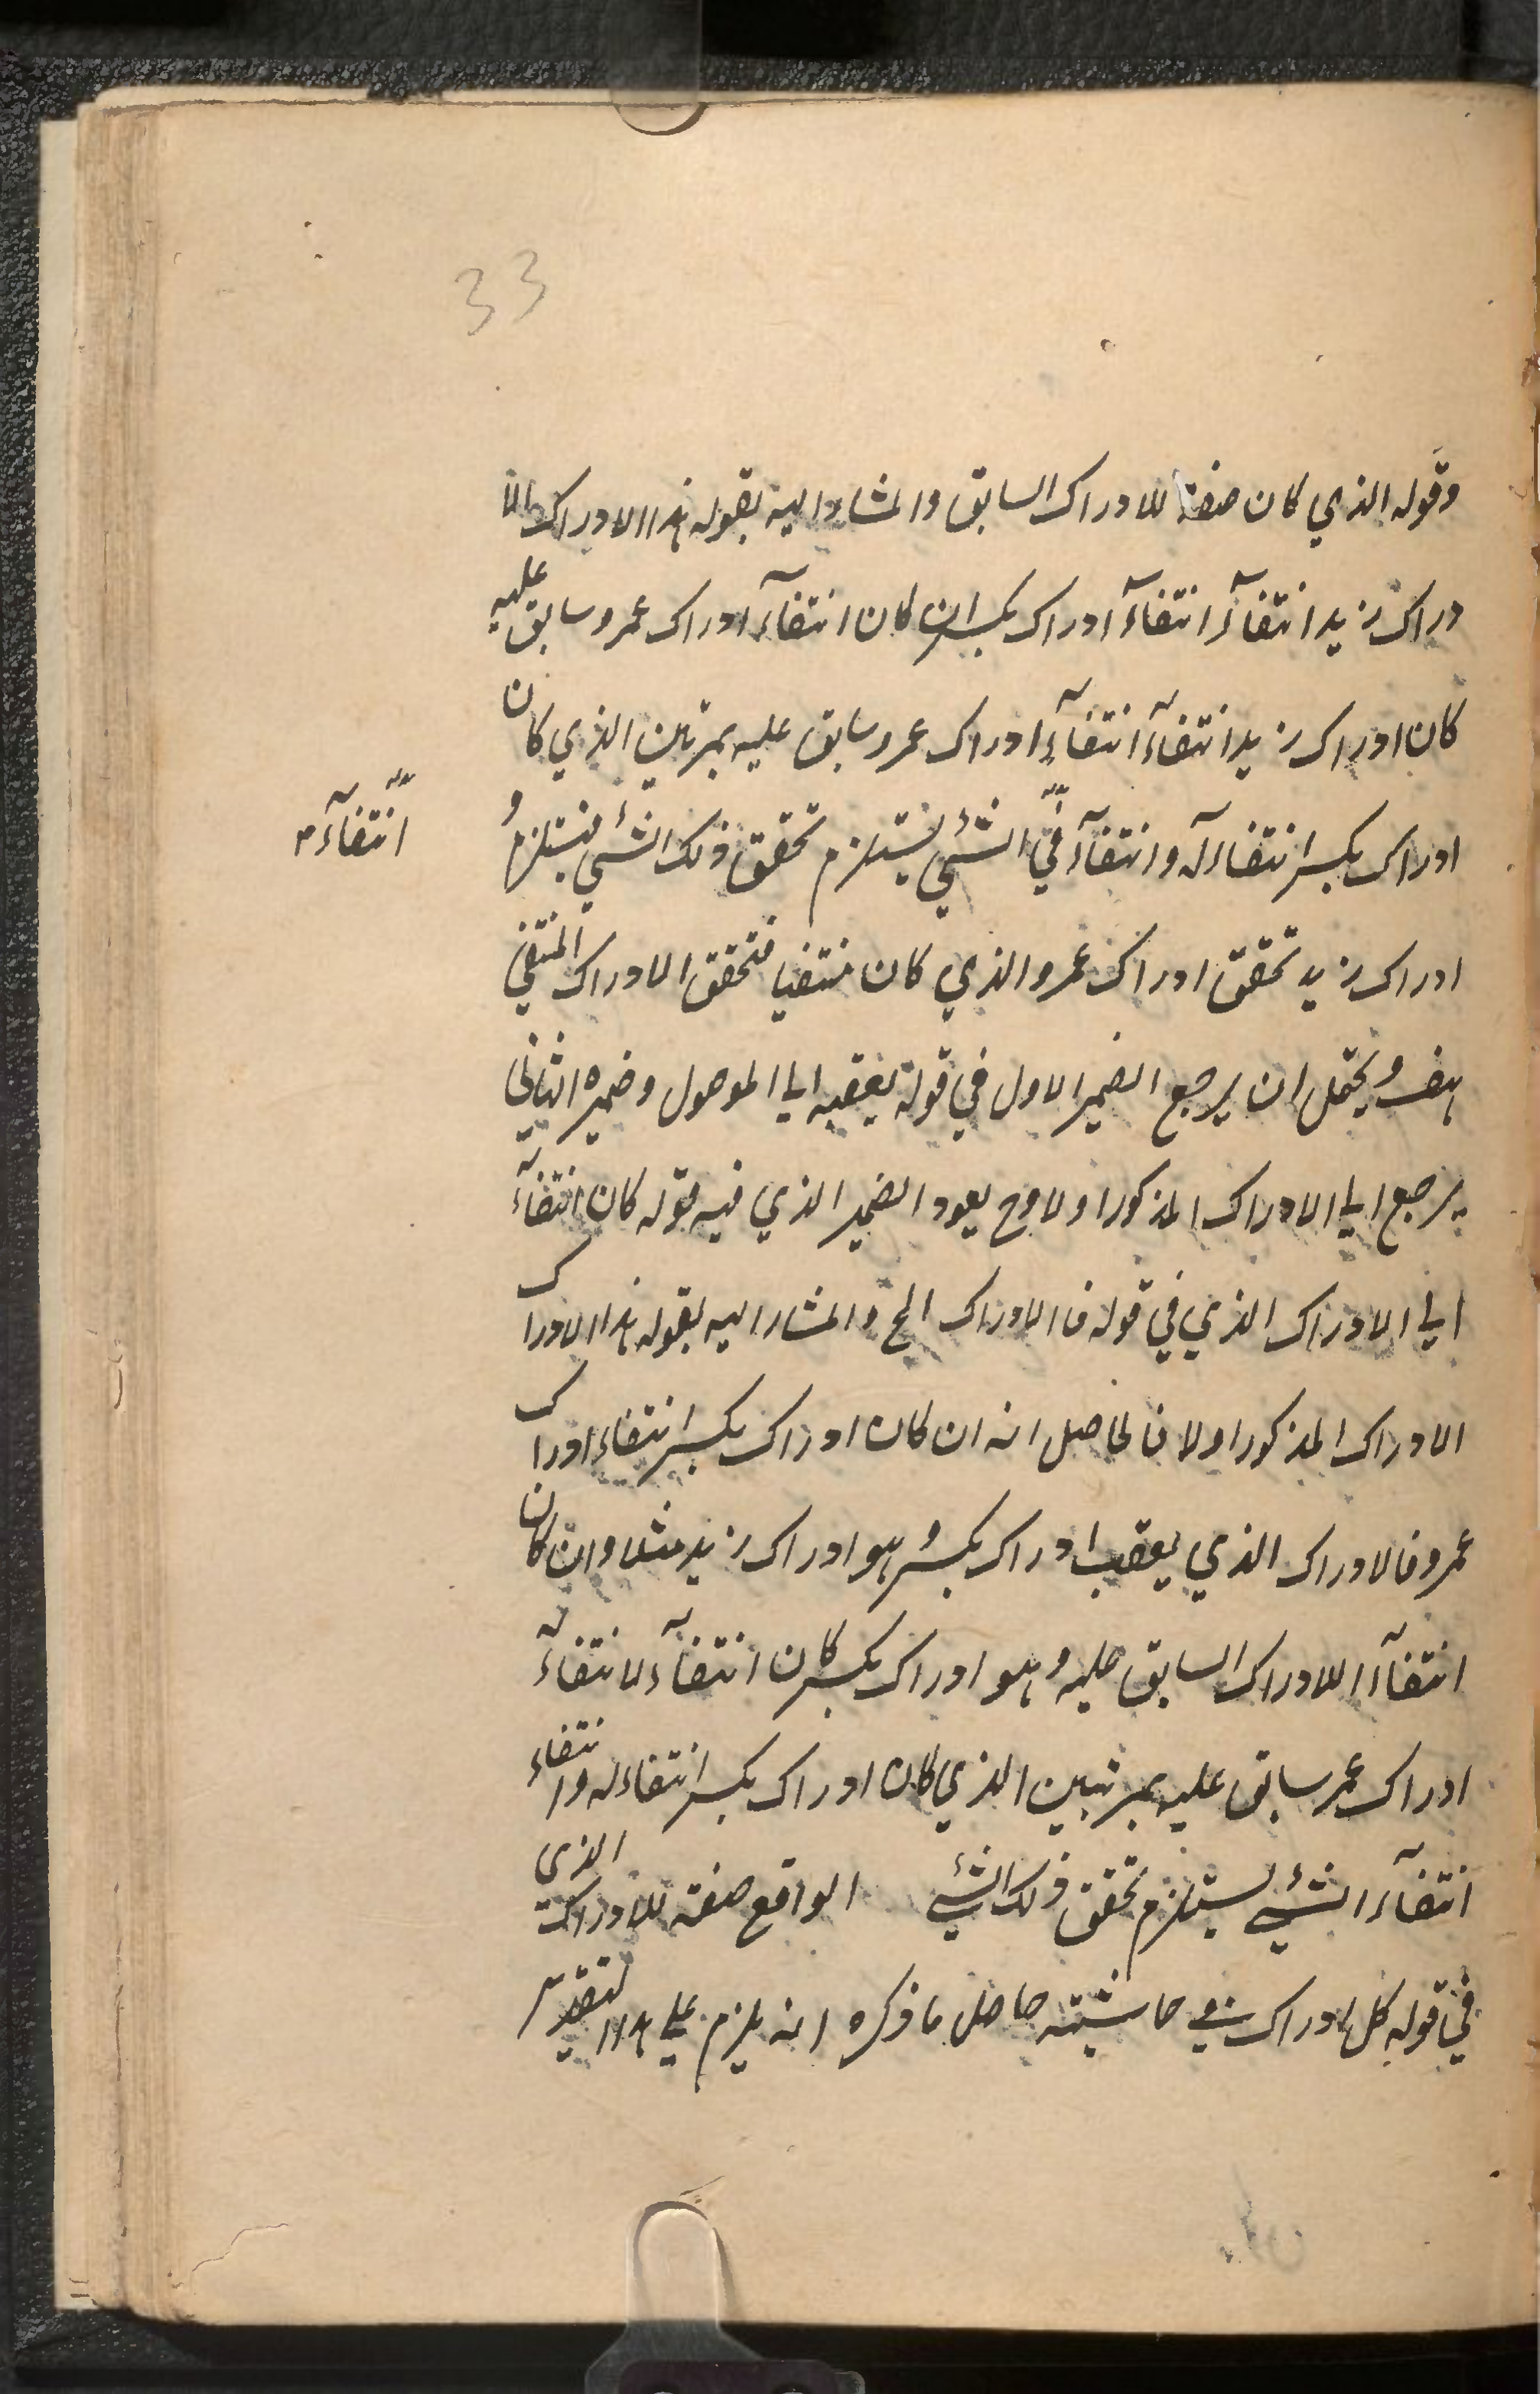 33
وقوله الذي كان صفة للادراك السابق والمشار اليه بقوله هذا الادراك الا
دراك زيد انتفاءً انتفاءً ادراك بكر ان كان انتفاء ادراك عمرو سابق عليه
كان ادراك زيد انتفاء انتفاء ادراك عمرو سابق عليه بمرتبتين الذي كان
ادراك بكر انتفاء له وانتفاء الشئ يستلزم تحقق ذلك الشئ فيستلزم
انتفاء
ادراك زيد تحقق ادراك عمرو الذي كان منتفيا فتحقق الادراك المنتفي
هف ويحتمل ان يرجع الضمير الاول في قوله يعقبه الي الموصول وضميره الثاني
يرجع الي الادراك المذكور اولا وح يعود الضمير الذي فيه قوله كان انتفاء
الي الادراك الذي في قوله فالادراك الخ والمشار اليه بقوله هذا الادراك
الادراك المذكور اولا فالحاصل انه ان كان ادراك بكر انتفاء ادراك
عمرو فالادراك الذي يعقب ادراك بكر وهو ادراك زيد مثلا وان كان
انتفاء الادراك السابق عليه وهو ادراك بكر كان انتفاء لانتفاء
ادراك عمر سابق عليه بمرتبتين الذي كان ادراك بكر انتفاء له وانتفاء
انتفاء الشئ يستلزم تحقق ذلك الشئ الواقع صفة للادراك الذي
في قوله كل ادراك في حاشيته حاصل ما ذكره انه يلزم علي هذا التقدير